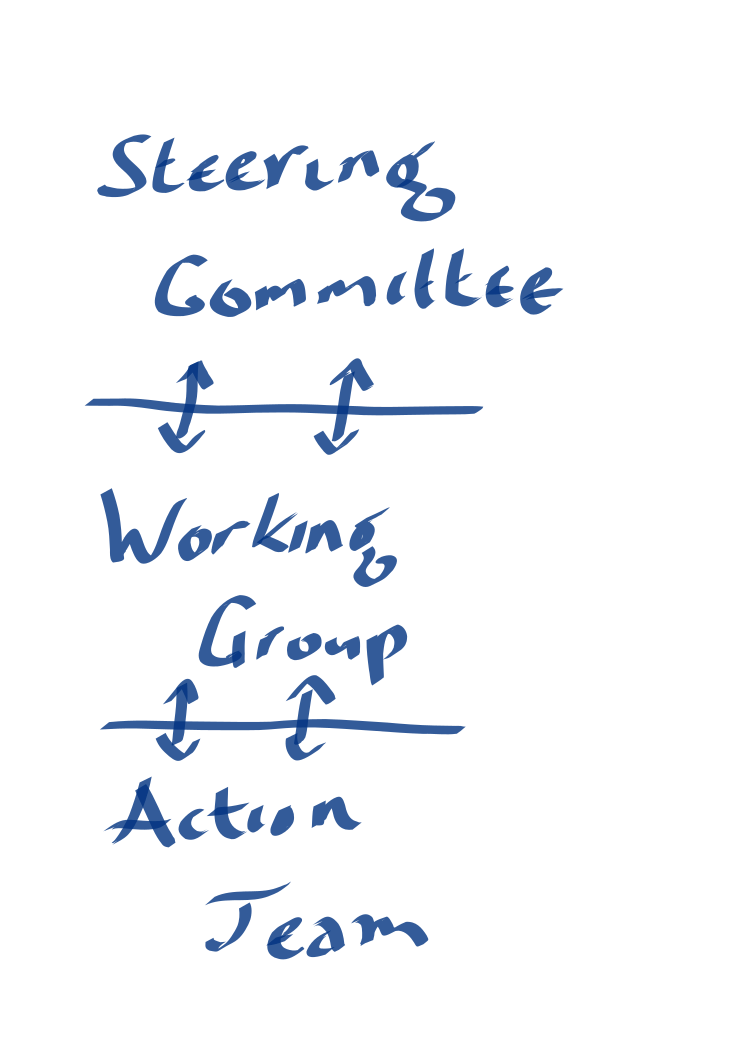 Steering
Committee
Working
Group
Action
Team